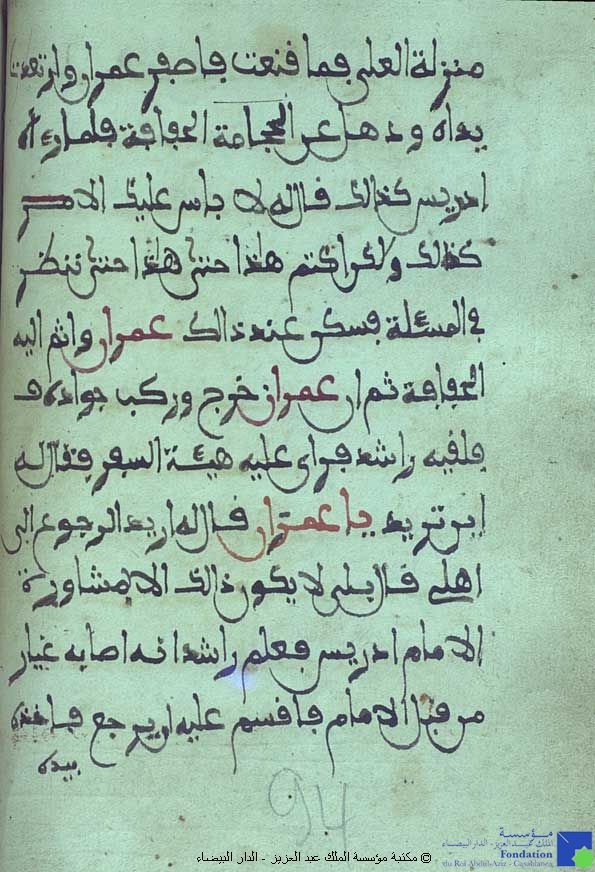 منزلة العلى فما فنعت فاصفر عمران وارتعدتا
يداه وذهل عن الحجامة الحفافة فلما رءاه
ادريس كذالك فال له لا باس عليك الامر
كذلك ولاكن اكتم هاذا حتى هاذا حتى ننظر
في المسئلة فسكن عند ذالك عمران واتم اليه
الحفافة ثم ان عمران خرج وركب جواده ف
فلفيه راشد فراى عليه هيئة السفر ففال له
اين تريد يا عمران فال له اريد الرجوع الى
اهلي فال بلى لا يكون ذالك الا بمشاورة
الامام ادريس فعلم راشد انه اصابه غيار
من فبل الامام فافسم عليه ان يرجع فاخذه
بيده
94
مؤسسة
الملك عبد العزيز - الدار البيضاء
Fondation
du Roi Abdul-Aziz - Casablanca
© مكتبة مؤسسة الملك عبد العزيز - الدار البيضاء